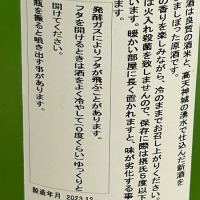 酒は良質の酒米と、高天神城の湧水で仕込んだ新酒を
しました原酒です。
の香りを楽しみながら、冷のままでお召し上がりください。
は火入れ殺菌を致しませんので、保存に際は摂氏5度以下
います。暖かい部屋に長く置かれますと、味が劣化する事
す。
発酵ガスによりフタが飛ぶことがあります。
フタを開けるときは酒をよく冷やして(0度くらい)ゆっくりと
開けてください。
瓶を振ると噴き出す事があります。
製造年月 2023.12